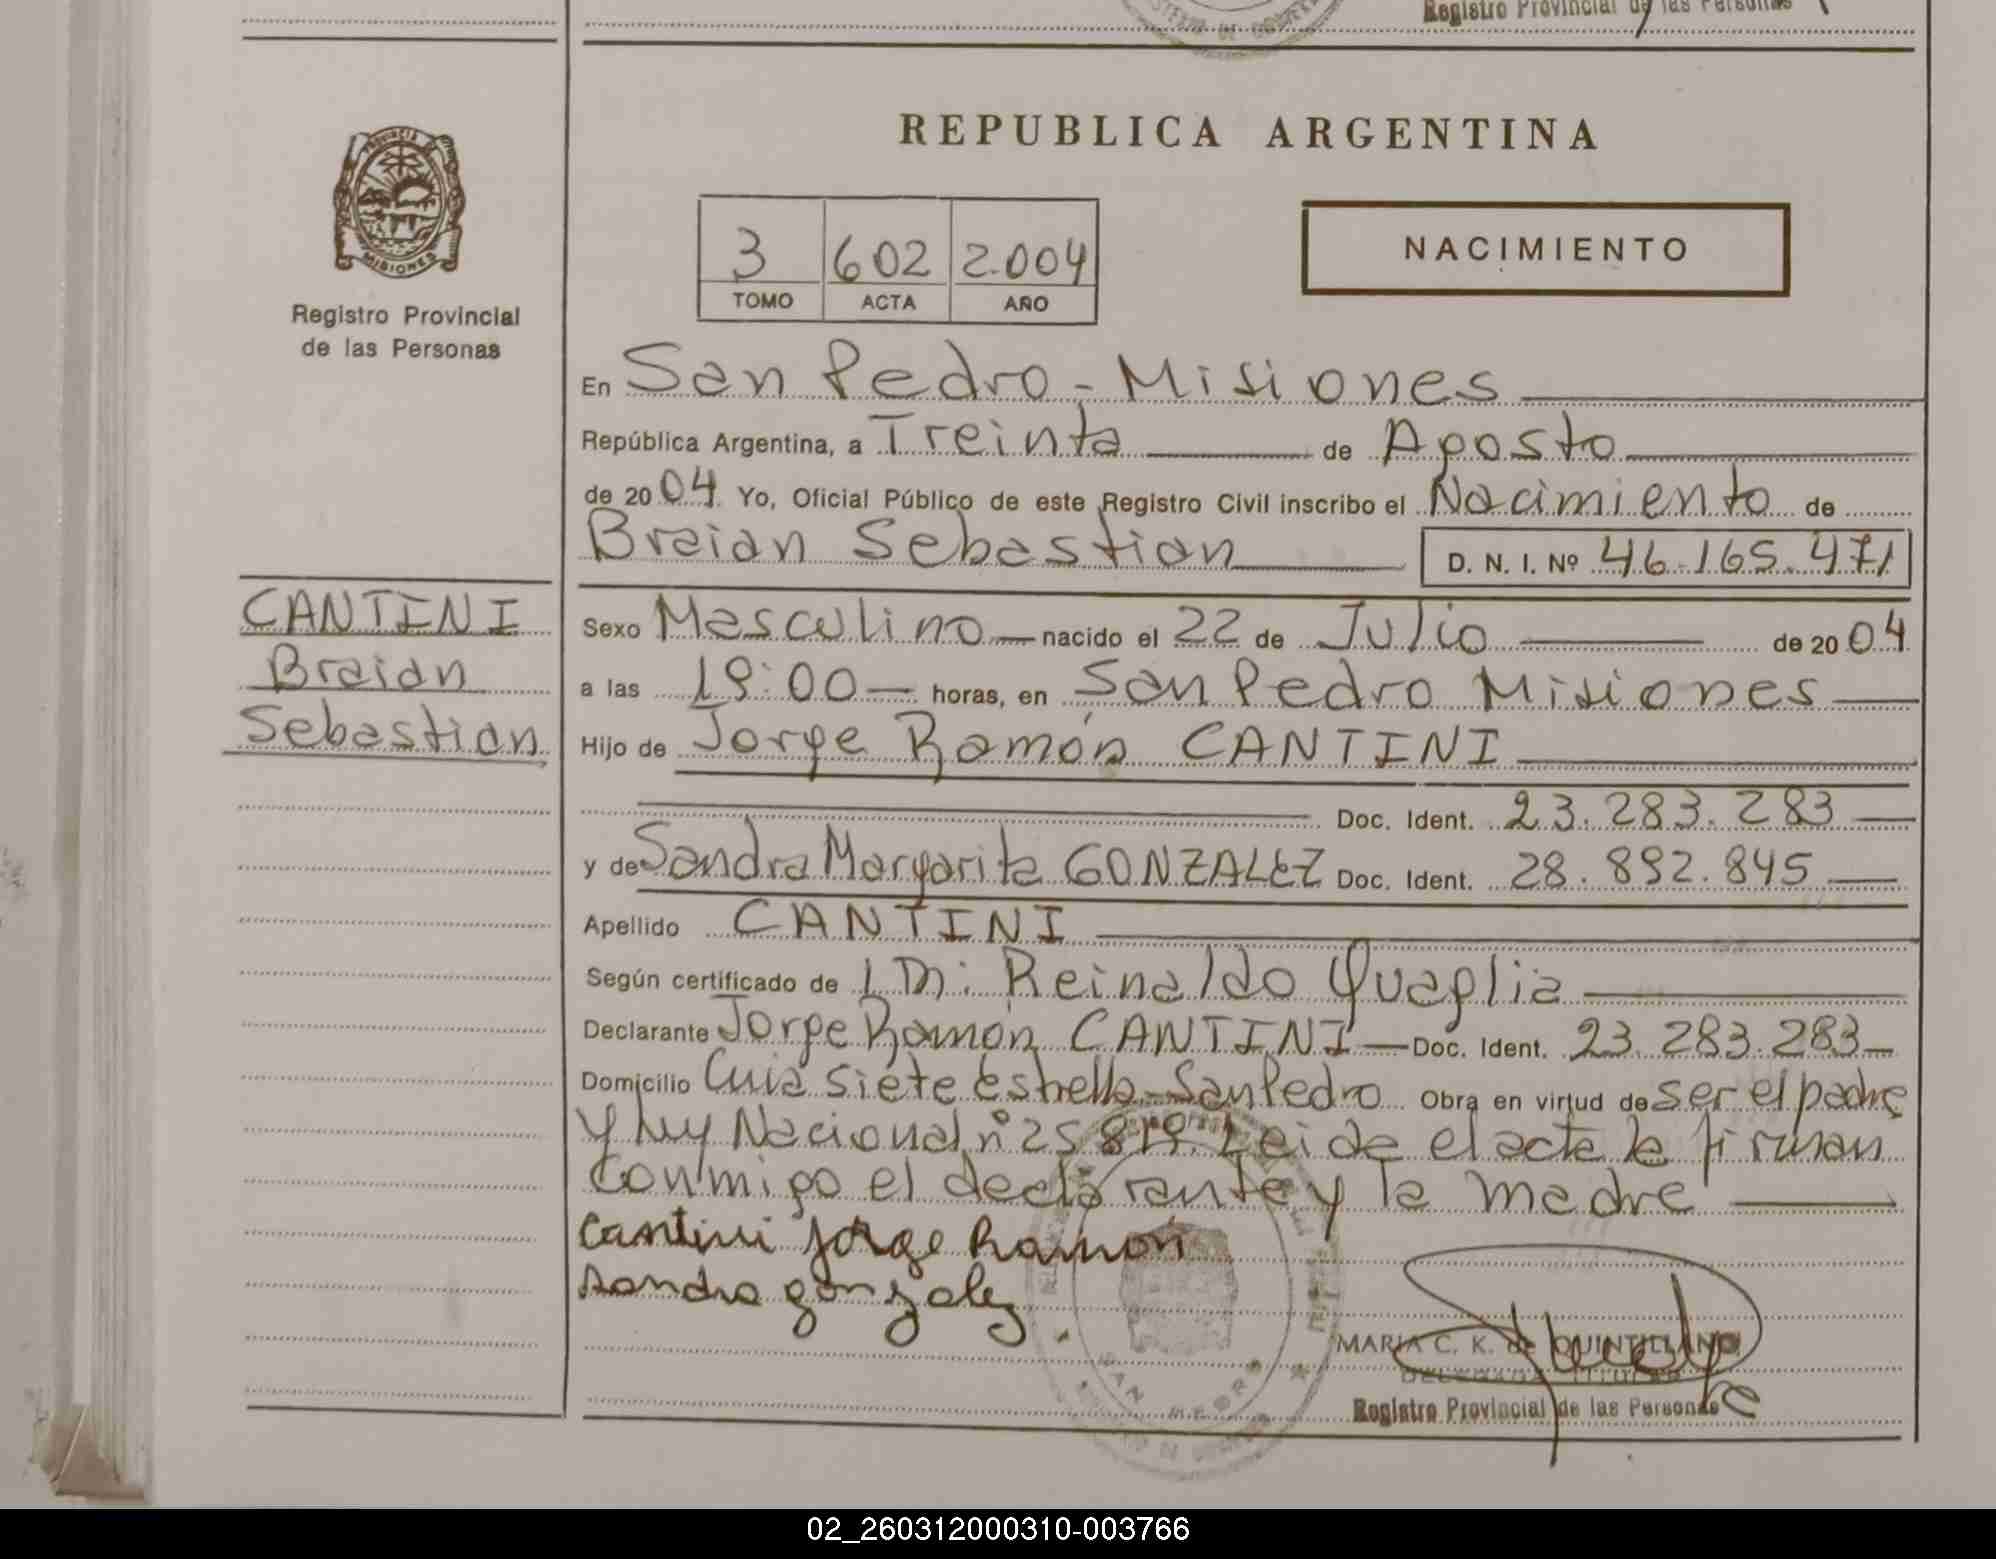 Registro Provincial de las Personas
REPUBLICA ARGENTINA
PROVINCIA DE
MISIONES
Registro Provincial
de las Personas
3 602 2.004
TOMO ACTA AÑO
NACIMIENTO
En San Pedro - Misiones
República Argentina, a Treinta de Agosto
de 2004 Yo, Oficial Público de este Registro Civil inscribo el Nacimiento de
Braian Sebastian D. N. I. Nº 46.165.471
CANTINI
Braian
Sebastian
Sexo Masculino nacido el 22 de Julio de 2004
a las 19:00 horas, en San Pedro Misiones
Hijo de Jorge Ramón CANTINI
Doc. Ident. 23.283.283
y de Sandra Margarita GONZALEZ Doc. Ident. 28.892.845
Apellido CANTINI
Según certificado de Reinaldo Quaglia
Declarante Jorge Ramón CANTINI Doc. Ident. 23.283.283
Domicilio Cuia Siete Estrella - San Pedro Obra en virtud de ser el padre
y ley Nacional nº 25.819. Leida el acta la firman
conmigo el declarante y la madre
Cantini Jorge Ramón
Sandra gonzalez
SAN PEDRO
MARIA C. K. de QUINTILLANO
DELEGADA TITULAR
Registro Provincial de las Personas
02_260312000310-003766